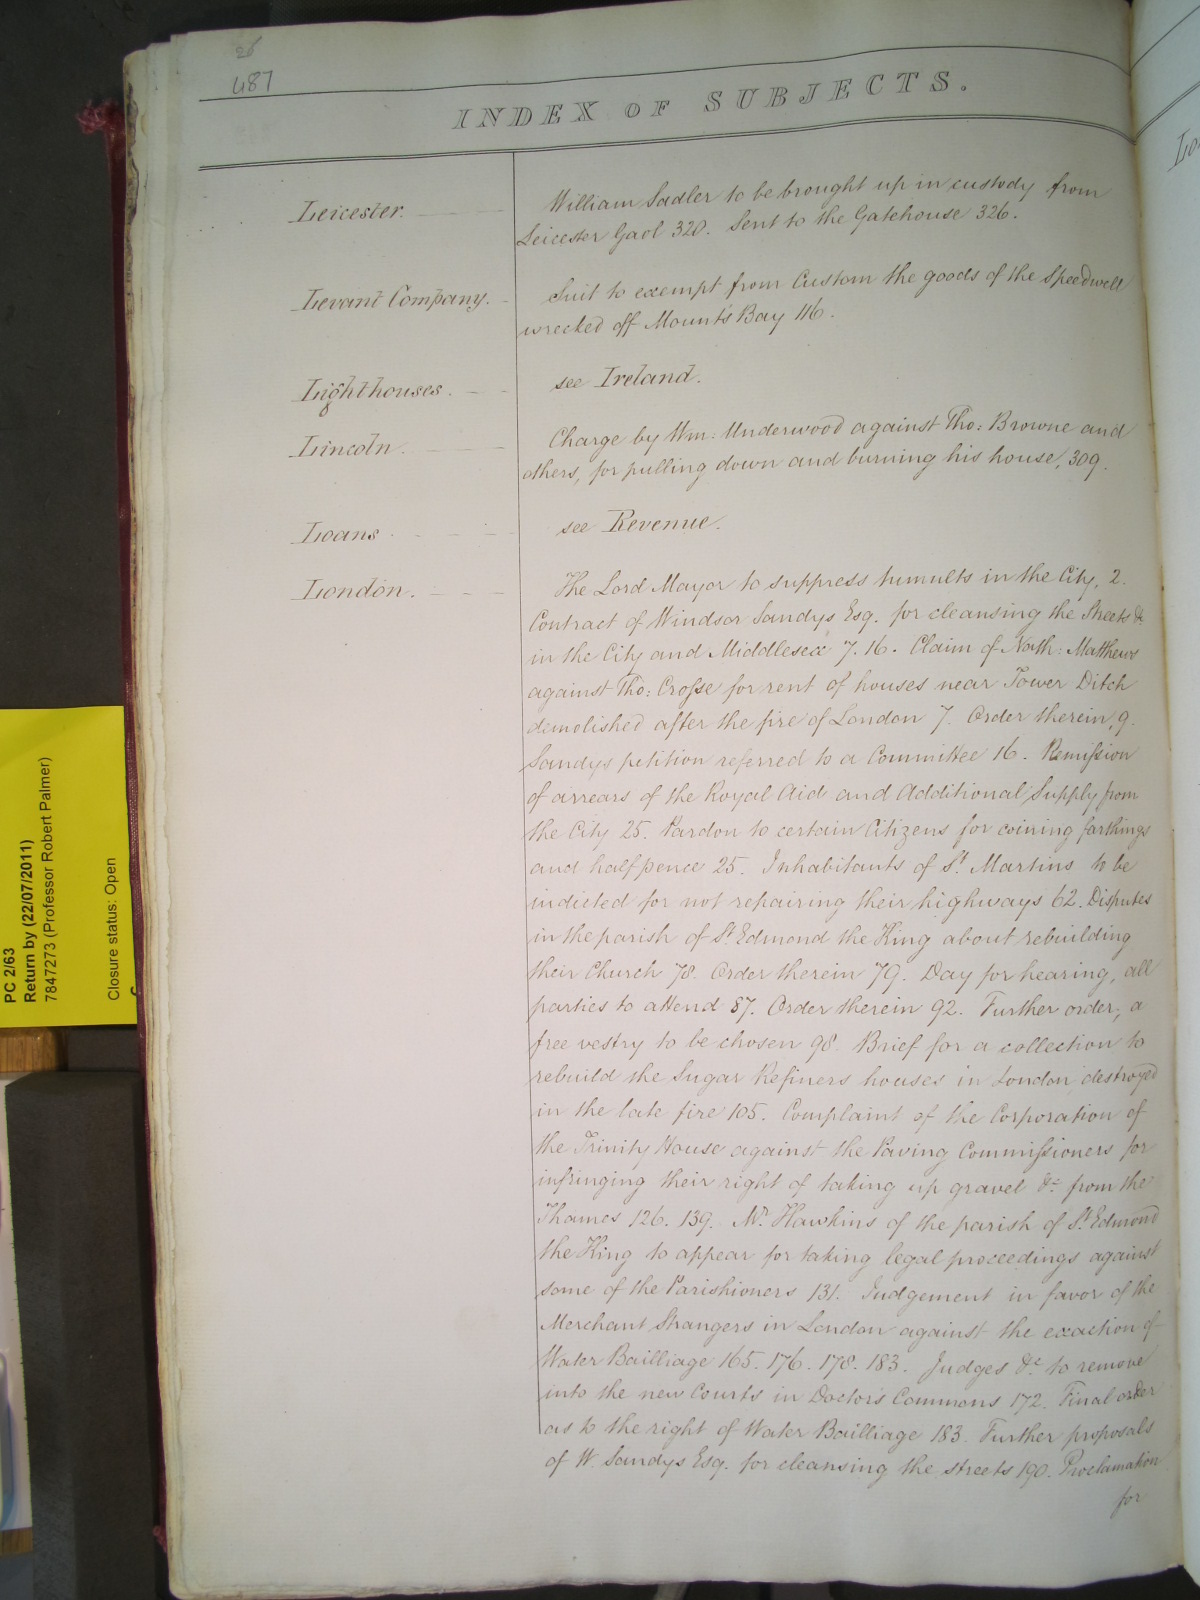 26
487
INDEX OF SUBJECTS.
Leicester.
William Sadler to be brought up in custody from
Leicester Gaol 320. Sent to the Gatehouse 326.
Levant Company.
Suit to exempt from Custom the goods of the Speedwell
wrecked off Mounts Bay 116.
Lighthouses.
see Ireland.
Lincoln.
Charge by Wm: Underwood against Tho: Browne and
others, for pulling down and burning his house, 309.
Loans
see Revenue.
London.
The Lord Mayor to suppress tumults in the City, 2.
Contract of Windsor Sandys Esq. for cleansing the Streets &c
in the City and Middlesex 7. 16. Claim of Nath: Matthews
against Tho: Crosse for rent of houses near Tower Ditch
demolished after the fire of London 7. Order therein, 9.
Sandys petition referred to a Committee 16. Remission
of arrears of the Royal Aid and Additional Supply from
the City 25. Pardon to certain Citizens for coining farthings
and halfpence 25. Inhabitants of St Martins to be
indicted for not repairing their highways 62. Disputes
in the parish of St Edmond the King about rebuilding
their Church 78. Order therein 79. Day for hearing, all
parties to attend 87. Order therein 92. Further order, a
free vestry to be chosen 98. Brief for a collection to
rebuild the Sugar Refiners houses in London destroyed
in the late fire 105. Complaint of the Corporation of
the Trinity House against the Paving Commissioners for
infringing their right of taking up gravel &c from the
Thames 126. 139. Mr Hawkins of the parish of St Edmond
the King to appear for taking legal proceedings against
some of the Parishioners 131. Judgement in favor of the
Merchant Strangers in London against the exaction of
Water Bailliage 165. 176. 178. 183. Judges &c to remove
into the new Courts in Doctors Commons 172. Final order
as to the right of Water Bailliage 183. Further proposals
of W. Sandys Esq. for cleansing the streets 190. Proclamation
for
PC 2/63
Return by (22/07/2011)
7847273 (Professor Robert Palmer)
Closure status: Open